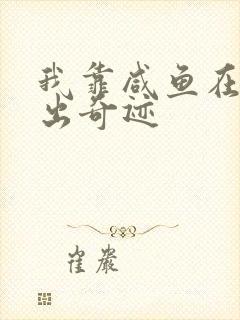 我靠咸鱼在
出奇迹
崔嚴